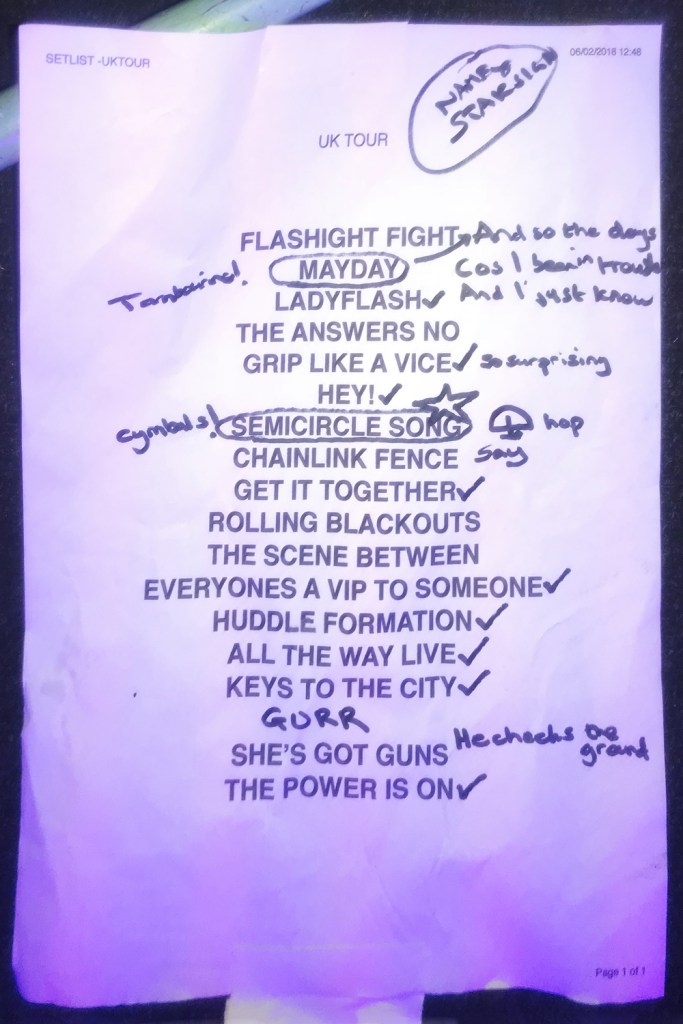 SETLIST -UKTOUR
06/02/2018 12:48
NAME &
STARSIGN
UK TOUR
FLASHIGHT FIGHT And so the days
MAYDAY Cos I been in
Tambourine!
LADYFLASH✓ And I just know
THE ANSWERS NO
GRIP LIKE A VICE✓ so surprising
HEY!✓
cymbals! SEMICIRCLE SONG hop
CHAINLINK FENCE say
GET IT TOGETHER✓
ROLLING BLACKOUTS
THE SCENE BETWEEN
EVERYONES A VIP TO SOMEONE✓
HUDDLE FORMATION✓
ALL THE WAY LIVE✓
KEYS TO THE CITY✓
GURR
SHE'S GOT GUNS He checks the
THE POWER IS ON✓
Page 1 of 1